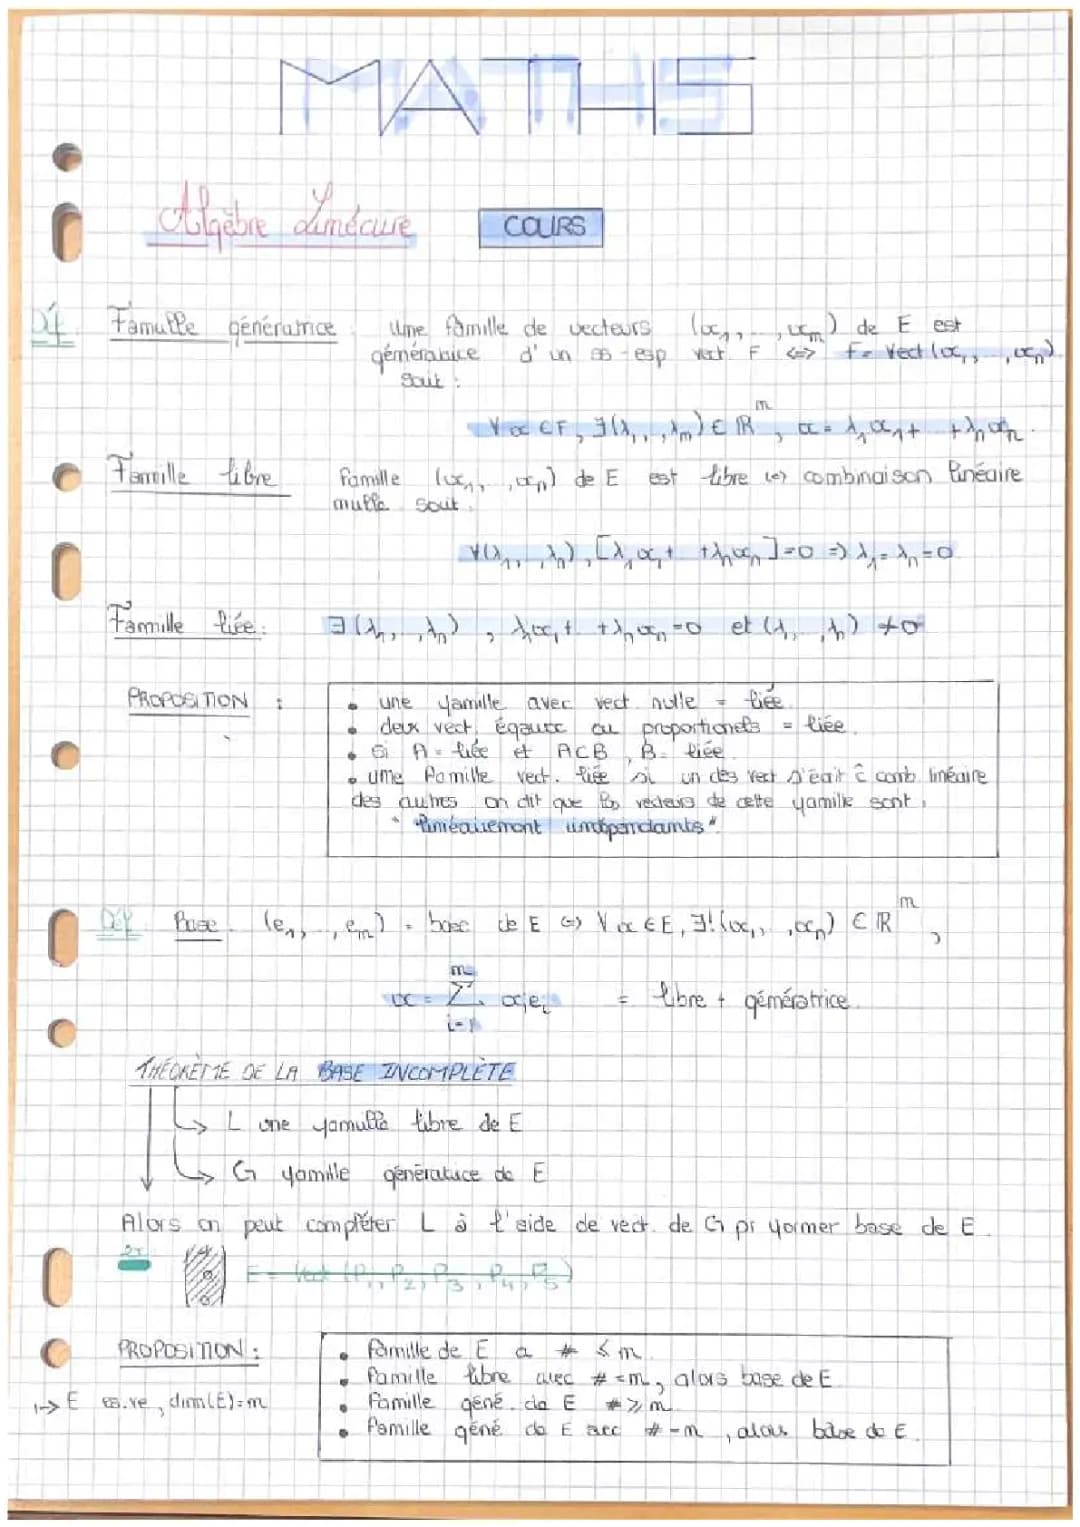 MATHS
Algèbre Linéaire COURS
Déf Famille génératrice : Une famille de vecteurs (x₁, .., xₙ) de E est
génératrice d'un ss-esp vect. F <=> F = Vect(x₁, .., xₙ)
Soit :
∀x ∈ F, ∃(λ₁, .., λₙ) ∈ ℝⁿ, x = λ₁x₁ + .. + λₙxₙ.
Famille libre famille (x₁, .., xₙ) de E est libre <=> combinaison linéaire
nulle soit.
∀(λ₁, .., λₙ), [λ₁x₁ + .. + λₙxₙ] = 0 => λ₁ = λₙ = 0
Famille liée : ∃(λ₁, .., λₙ), λ₁x₁ + .. + λₙxₙ = 0 et (λ₁, .., λₙ) ≠ 0
PROPOSITION :
• une famille avec vect. nulle = liée.
• deux vect. égaux ou proportionels = liée.
• Si A = liée et A⊂B, B = liée.
• une famille vect. liée si un des vect s'écrit ĉ comb. linéaire
des autres on dit que les vecteurs de cette famille sont
"linéairement indépendants".
Déf Base. (e₁, .., eₙ) = base de E <=> ∀x ∈ E, ∃!(x₁, .., xₙ) ∈ ℝⁿ,
x = Σⁿᵢ₌₁ xᵢeᵢ = libre + génératrice.
THÉORÈME DE LA BASE INCOMPLÈTE
↳ L une famille libre de E
↳ G famille génératrice de E
Alors on peut compléter L à l'aide de vect. de G pr former base de E.
ex E = Vect (P₁, P₂, P₃, P₄, P₅)
PROPOSITION :
↳ E es.ve, dim(E) = n
• famille de E a # ≤ n.
• famille libre avec # = n, alors base de E
• famille géné. de E # ≥ n.
• famille géné de E avec # = n, alors base de E.